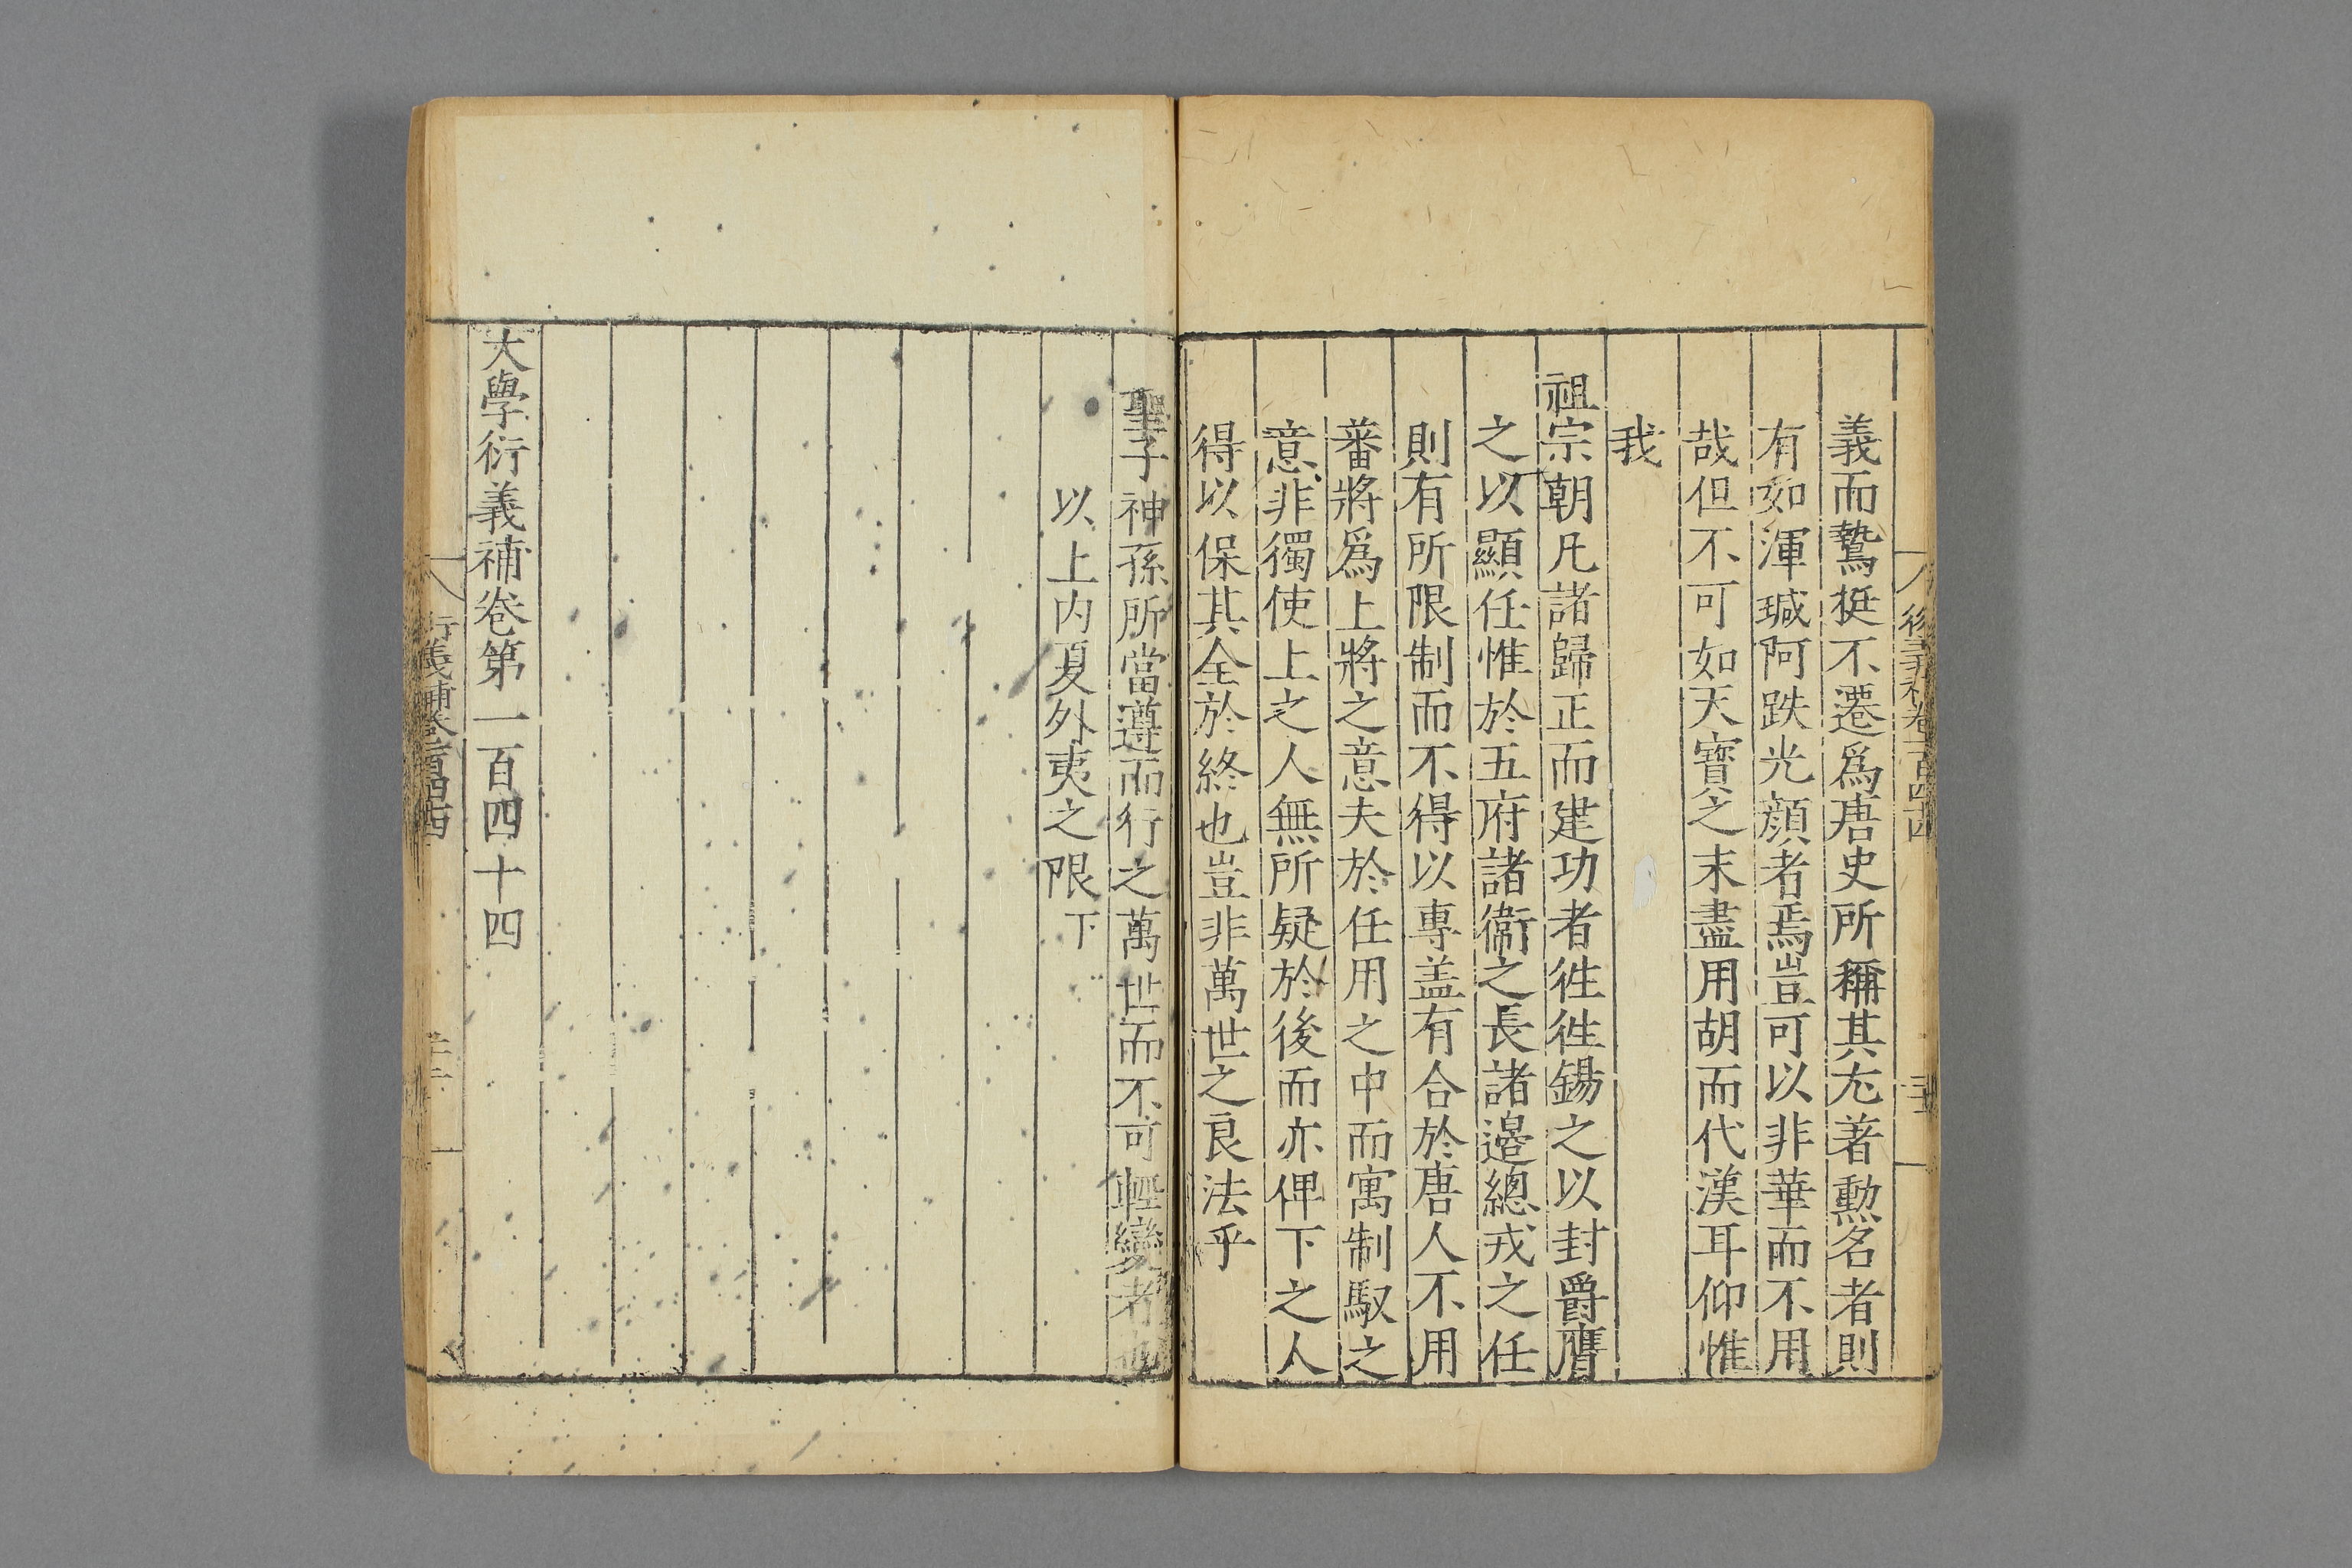 義而鷙挺不遷爲唐史所稱其尤著勲名者則
有如渾瑊阿跌光顔者焉豈可以非華而不用
哉但不可如天寳之末盡用胡而代漢耳仰惟
我
祖宗朝凡諸歸正而建功者徃徃錫之以封爵膺
之以顯任惟於五府諸衞之長諸邉總戎之任
則有所限制而不得以專盖有合於唐人不用
蕃將爲上將之意夫於任用之中而寓制馭之
意非獨使上之人無所疑於後而亦俾下之人
得以保其全於終也豈非萬世之良法乎
聖子神孫所當遵而行之萬世而不可輕變者也
以上内夏外夷之限下
大學衍義補卷第一百四十四